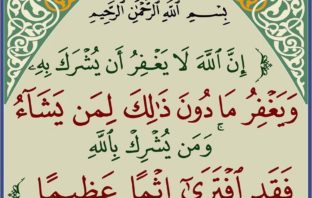 بِسْمِ اللَّهِ الرَّحْمَٰنِ الرَّحِيمِ
إِنَّ اللَّهَ لَا يَغْفِرُ أَن يُشْرَكَ بِهِۦ
وَيَغْفِرُ مَا دُونَ ذَٰلِكَ لِمَن يَشَآءُ ۚ
وَمَن يُشْرِكْ بِاللَّهِ
فَقَدِ افْتَرَىٰٓ إِثْمًا عَظِيمًا